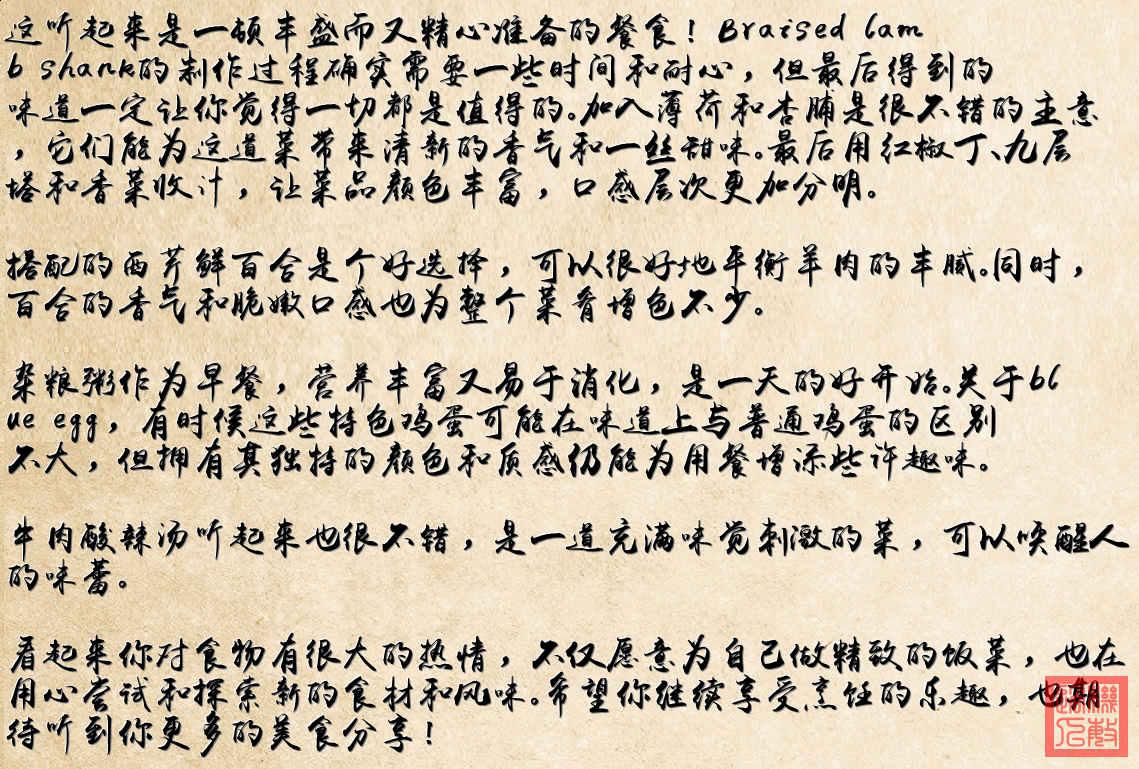 这听起来是一顿丰盛而又精心准备的餐食！Braised lam
b shank的制作过程确实需要一些时间和耐心，但最后得到的
味道一定让你觉得一切都是值得的。加入薄荷和杏脯是很不错的主意
，它们能为这道菜带来清新的香气和一丝甜味。最后用红椒丁、九层
塔和香菜收汁，让菜品颜色丰富，口感层次更加分明。
搭配的西芹鲜百合是个好选择，可以很好地平衡羊肉的丰腻。同时，
百合的香气和脆嫩口感也为整个菜肴增色不少。
杂粮粥作为早餐，营养丰富又易于消化，是一天的好开始。关于bl
ue egg，有时候这些特色鸡蛋可能在味道上与普通鸡蛋的区别
不大，但拥有其独特的颜色和质感仍能为用餐增添些许趣味。
牛肉酸辣汤听起来也很不错，是一道充满味觉刺激的菜，可以唤醒人
的味蕾。
看起来你对食物有很大的热情，不仅愿意为自己做精致的饭菜，也在
用心尝试和探索新的食材和风味。希望你继续享受烹饪的乐趣，也期
待听到你更多的美食分享！